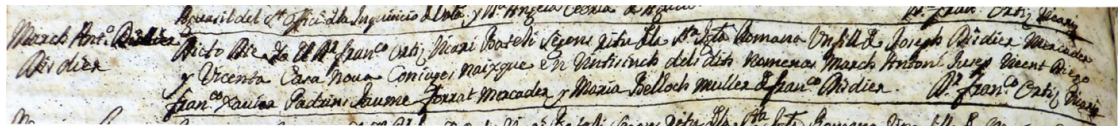 Aguasil del St. Offici de la Inquisicio de
Dr. Franco. Ortiz Vicari
March Anto. Birdier
Dicto Die Yo el Dr. Franco. Ortiz Vicari Bategi segons ritu de la Sta. Igla. Romana Un fill de Joseph Birdier Mercader
Birdier
y Vicenta Casa Nova Coniuges naixque en Vintisinch dels dits nomenas March Antoni Jusep Vicent Diego
Franco. Xavier Padrins Jaume Ferrat Mercader y Maria Belloch Muller de Franco. Birdier Dr. Franco. Ortiz Vicari